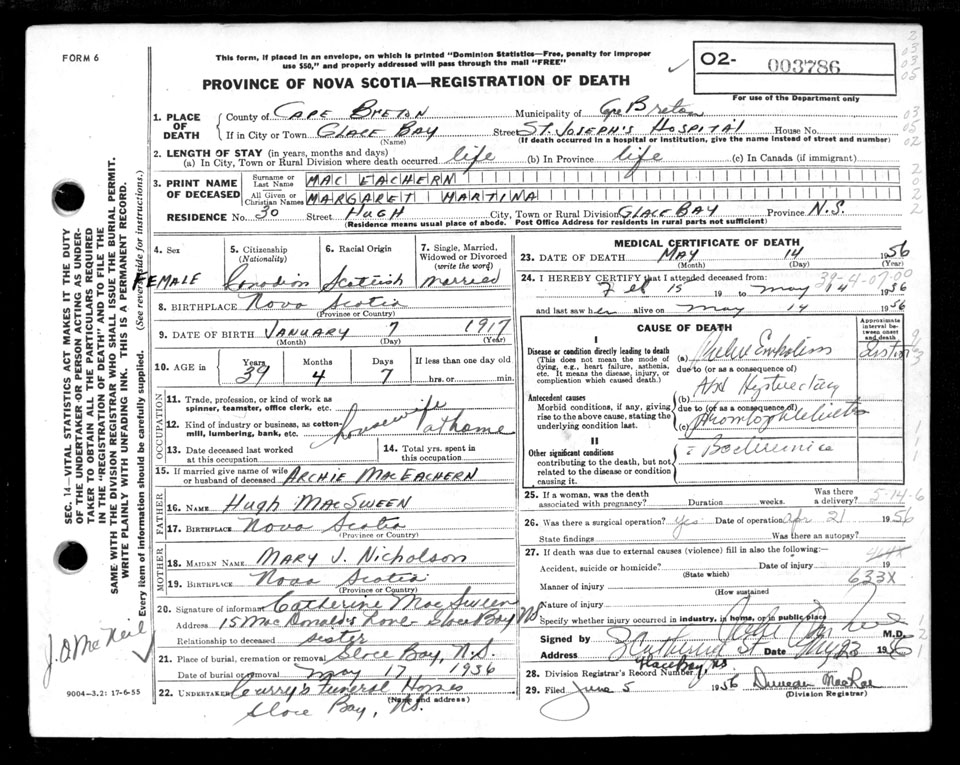 FORM 6
This form, if placed in an envelope, on which is printed "Dominion Statistics—Free, penalty for improper
use $50," and properly addressed will pass through the mail "FREE"
PROVINCE OF NOVA SCOTIA—REGISTRATION OF DEATH
O2- 003786
For use of the Department only
1. PLACE OF DEATH
County of CAPE BRETON Municipality of Cape Breton
If in City or Town GLACE BAY Street ST. JOSEPH'S HOSPITAL House No.
(Name) (If death occurred in a hospital or institution, give the name instead of street and number)
2. LENGTH OF STAY (in years, months and days)
(a) In City, Town or Rural Division where death occurred life (b) In Province life (c) In Canada (if immigrant)
3. PRINT NAME OF DECEASED
Surname or Last Name MAC EACHERN
All Given or Christian Names MARGARET MARTINA
RESIDENCE No. 30 Street HUGH City, Town or Rural Division GLACE BAY Province N.S.
(Residence means usual place of abode. Post Office Address for residents in rural parts not sufficient)
4. Sex FEMALE
5. Citizenship (Nationality) Canadian
6. Racial Origin Scottish
7. Single, Married, Widowed or Divorced (write the word) married
8. BIRTHPLACE Nova Scotia
(Province or Country)
9. DATE OF BIRTH JANUARY 7 1917
(Month) (Day) (Year)
10. AGE in Years Months Days If less than one day old
39 4 7 hrs. or min.
OCCUPATION
11. Trade, profession, or kind of work as spinner, teamster, office clerk, etc. housewife
12. Kind of industry or business, as cotton-mill, lumbering, bank, etc. at home
13. Date deceased last worked at this occupation
14. Total yrs. spent in this occupation
15. If married give name of wife or husband of deceased ARCHIE MACEACHERN
FATHER
16. NAME Hugh MacSween
17. BIRTHPLACE Nova Scotia
(Province or Country)
MOTHER
18. MAIDEN NAME MARY J. Nicholson
19. BIRTHPLACE Nova Scotia
(Province or Country)
20. Signature of informant Catherine MacSween
Address 15 MacDonald's Row Glace Bay NS
Relationship to deceased sister
21. Place of burial, cremation or removal Glace Bay, N.S.
Date of burial or removal may 17 1956
22. UNDERTAKER Curry's Funeral Homes
(Name and address)
Glace Bay, NS.
MEDICAL CERTIFICATE OF DEATH
23. DATE OF DEATH MAY 14 1956
(Month) (Day) (Year)
24. I HEREBY CERTIFY that I attended deceased from: 39-4-07-00
Feb 15 19 to may 14 1956
and last saw her alive on may 14 1956
CAUSE OF DEATH
Approximate interval between onset and death
I
Disease or condition directly leading to death
(This does not mean the mode of dying, e.g., heart failure, asthenia, etc. It means the disease, injury, or complication which caused death.)
(a) Embolism
due to (or as a consequence of)
Antecedent causes
Morbid conditions, if any, giving rise to the above cause, stating the underlying condition last.
(b) Hysterectomy
due to (or as a consequence of)
(c) Thrombophlebitis
II
Other significant conditions
contributing to the death, but not related to the disease or condition causing it.
25. If a woman, was the death associated with pregnancy? Duration weeks. Was there a delivery? 5-14-6
26. Was there a surgical operation? yes Date of operation Apr 21 1956
State findings Was there an autopsy?
27. If death was due to external causes (violence) fill in also the following:
Accident, suicide or homicide? Date of injury 19
(State which) 633X
Manner of injury
(How sustained)
Nature of injury
Specify whether injured in industry, in home, or in public place
Signed by M.D.
Address Catherine St Date May 23 1956
Glace Bay, NS
28. Division Registrar's Record Number
29. Filed June 5 1956 Duncan MacRae
(Division Registrar)
SEC. 14—VITAL STATISTICS ACT MAKES IT THE DUTY
OF THE UNDERTAKER OR PERSON ACTING AS UNDER-
TAKER TO OBTAIN ALL THE PARTICULARS REQUIRED
IN THE "REGISTRATION OF DEATH" AND TO FILE THE
SAME WITH THE DIVISION REGISTRAR WHO SHALL ISSUE THE BURIAL PERMIT.
WRITE PLAINLY WITH UNFADING INK. THIS IS A PERMANENT RECORD.
Every item of information should be carefully supplied. (See reverse side for instructions.)
J. O McNeil
9004—3.2: 17-6-55